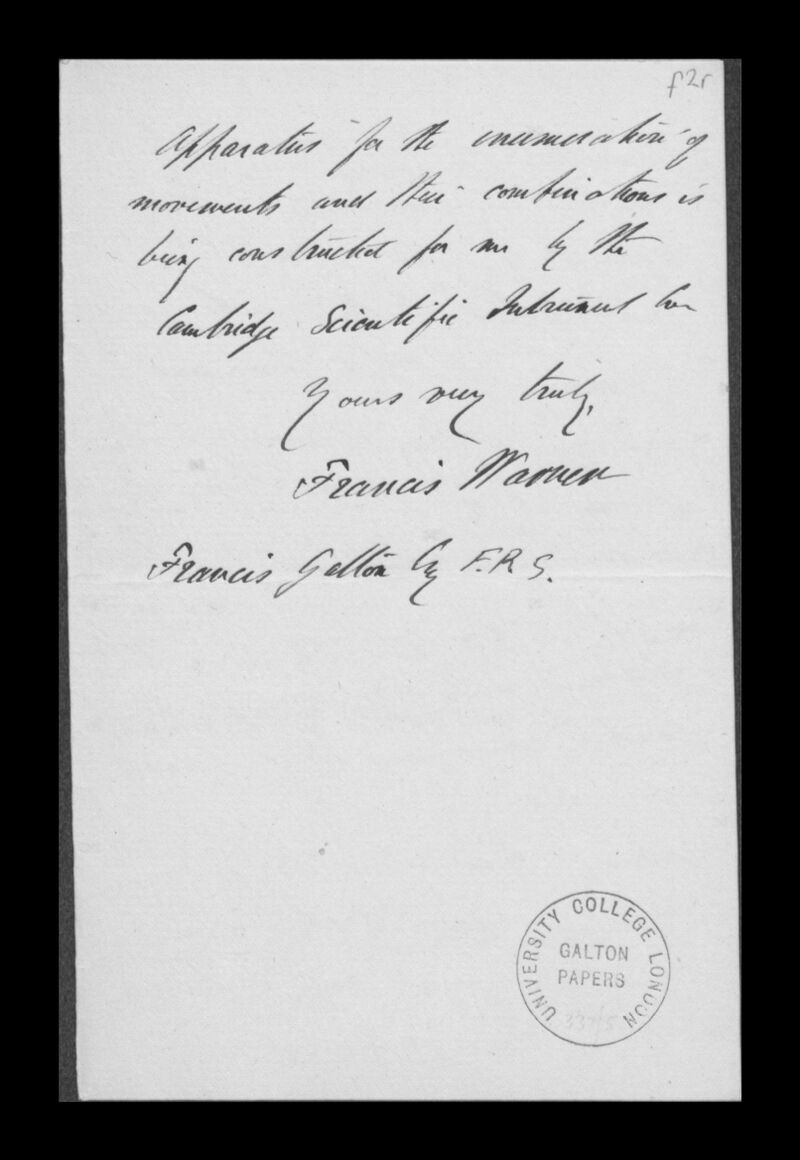 f2r
Apparatus for the enumeration of
movements and their combinations is
being constructed for me by the
Cambridge Scientific Intrument Co
Yours very truly,
Francis Warner
Francis Galton Esq F.R.S.
UNIVERSITY COLLEGE LONDON
GALTON
PAPERS